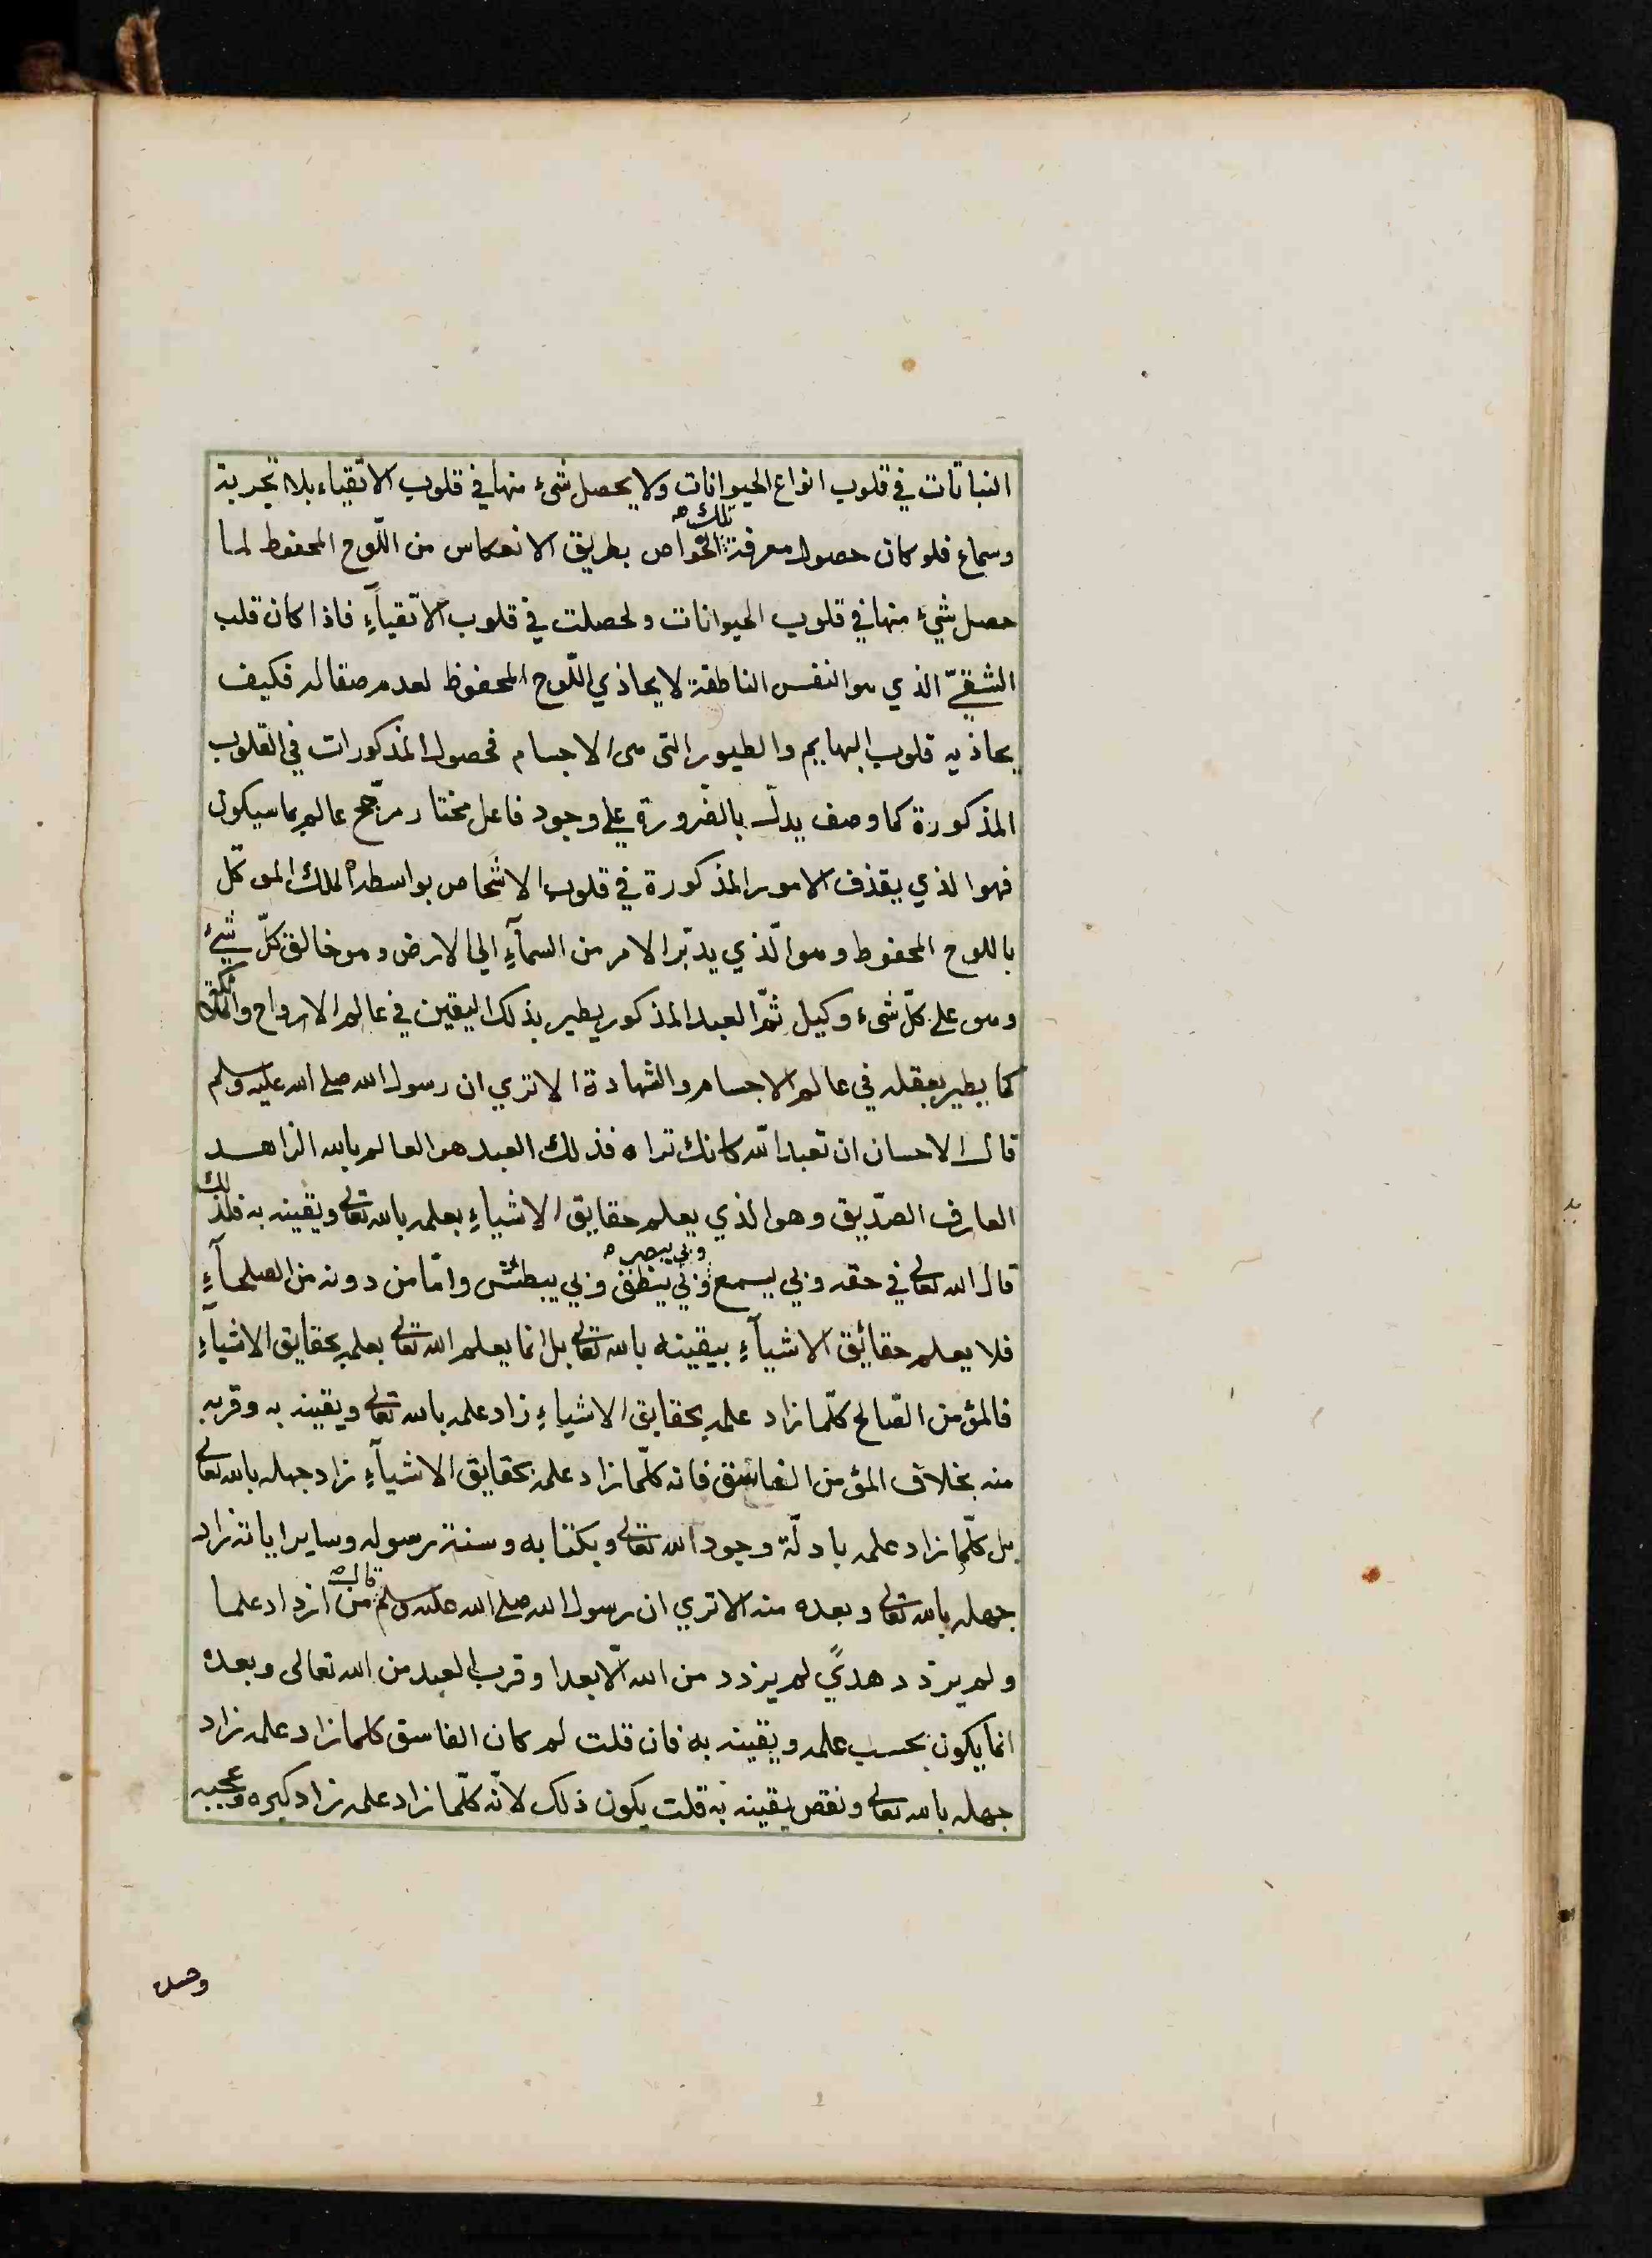 النباتات في قلوب انواع الحيوانات ولا يحصل شئ منها في قلوب الاتقياء بلا تجربة
وسماع فلو كان حصول معرفة تلك الخواص بطريق الانعكاس من اللّوح المحفوظ لما
حصل شيئ منها في قلوب الحيوانات ولحصلت في قلوب الاتقيآءِ فاذا كان قلب
الشقيّ الذي هو النفس الناطقة لا يحاذي اللّوح المحفوظ لعدم صقاله فكيف
يحاذيه قلوب البهايم والطيور التى هى الاجسام فحصول المذكورات في القلوب
المذكورة كما وصف يدلّ بالضّرورة علي وجود فاعل مختار مرجّح عالم بما سيكون
فهو الذي يقذف الامور المذكورة في قلوب الاشخاص بواسطة الملك الموكّل
باللوح المحفوظ وهو الّذي يدبّر الامر من السمآءِ الي الارض وهو خالق كلّ شيئ
وهو على كلّ شىء وكيل ثمّ العبد المذكور يطير بذلك اليقين في عالم الارواح والملائكة
كما يطير بعقله في عالم الاجسام والشهادة الا تري ان رسول الله صلي الله عليه وسلم
قال الاحسان ان تعبد الله كانك تراه فذلك العبد هو العالم بالله الزاهد
العارف الصّدّيق وهو الذي يعلم حقايق الاشياءِ بعلمه بالله تعالي ويقينه به فلذلك
قال الله تعالي في حقه وبي يسمع وبي يبصر وبي ينطق وبي يبطش وامّا من دونه من الصلحآءِ
فلا يعلم حقائق الاشيآءِ بيقينه بالله تعالي بل انما يعلم الله تعالي بعلمه بحقايق الاشيآءِ
فالمؤمن الصّالح كلّما زاد علمه بحقايق الاشياءِ زاد علمه بالله تعالي ويقينه به وقربه
منه بخلاف المؤمن الفاسق فانه كلّما زاد علمه بحقايق الاشيآءِ زاد جهله بالله تعالي
بل كلّما زاد علمه بادلّة وجود الله تعالي وبكتابه وسنة رسوله وساير اياته زاد
جهله بالله تعالي وبعده منه الا تري ان رسول الله صلي الله عليه وسلم قال من ازداد علما
ولم يزدد هديً لم يزدد من الله الّا بعدا وقرب العبد من الله تعالى وبعده
انما يكون بحسب علمه ويقينه به فان قلت لم كان الفاسق كلما زاد علمه زاد
جهله بالله تعالي ونقص يقينه به قلت يكون ذلك لانّه كلّما زاد علمه زاد كبره وعجبه